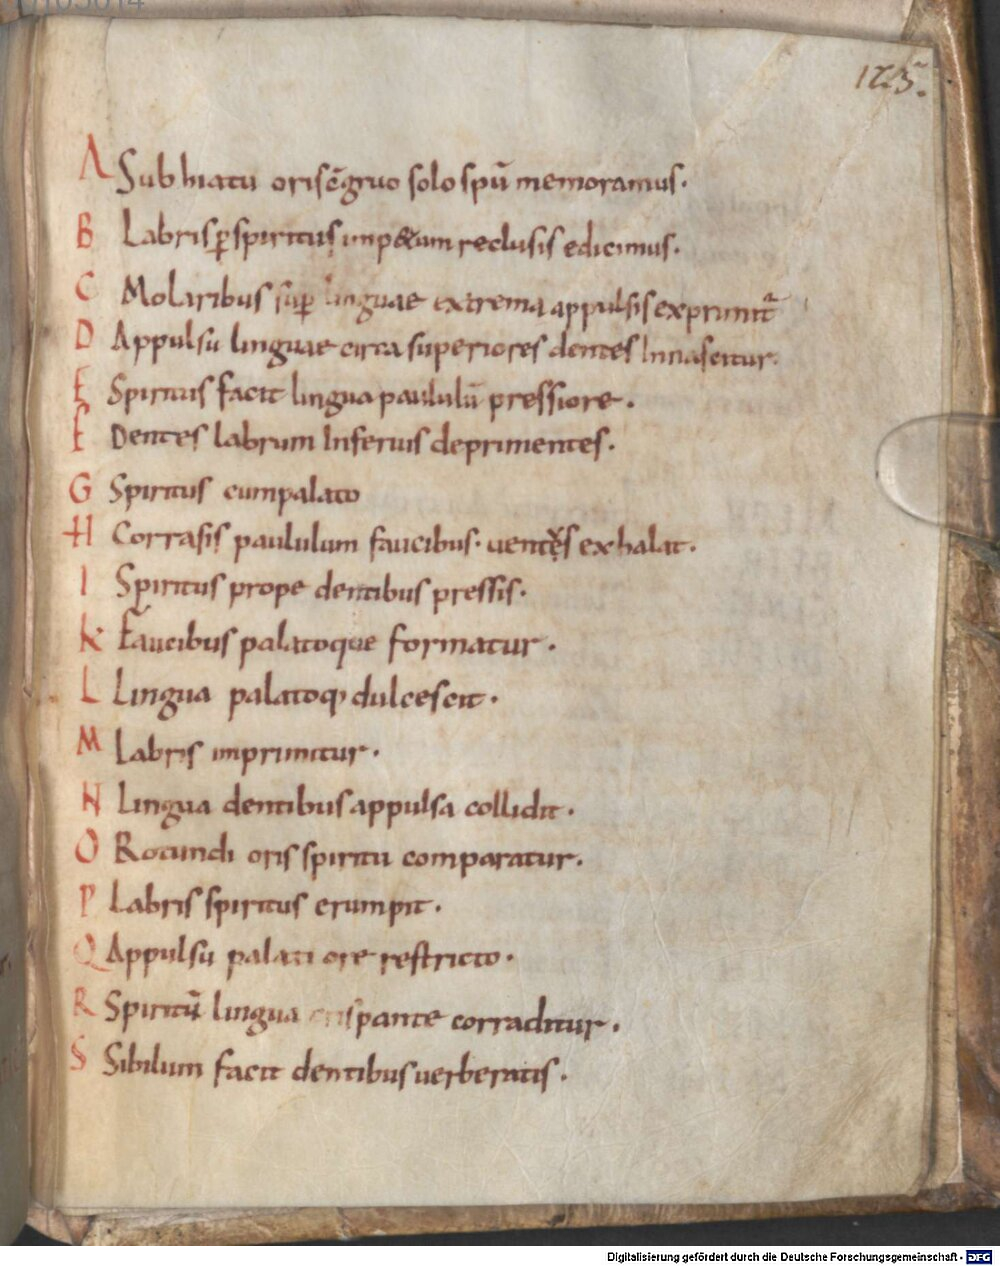 125.
A Sub hiatu oris c̄gruo solo spū memoramus.
B Labris ꝑ spiritus impetum reclusis edicimus.
C Molaribus suꝑ linguae extrema appulsis exprimit᷑
D Appulsu linguae circa superiores dentes Innascitur.
E Spiritus facit lingua paululū pressiore.
F Dentes labrum Inferius deprimentes.
G Spiritus cumpalato
H Corrasis paululum faucibus. ventus exhalat.
I Spiritus prope dentibus pressis.
K Faucibus palatoque formatur.
L Lingua palatoq; dulcescit.
M Labris imprimitur.
N Lingua dentibus appulsa collidit.
O Rotundi oris spiritu comparatur.
P Labris spiritus erumpit.
Q Appulsu palati ore restricto.
R Spiritū lingua crispante corraditur.
S Sibilum facit dentibus verberatis.
Digitalisierung gefördert durch die Deutsche Forschungsgemeinschaft - DFG